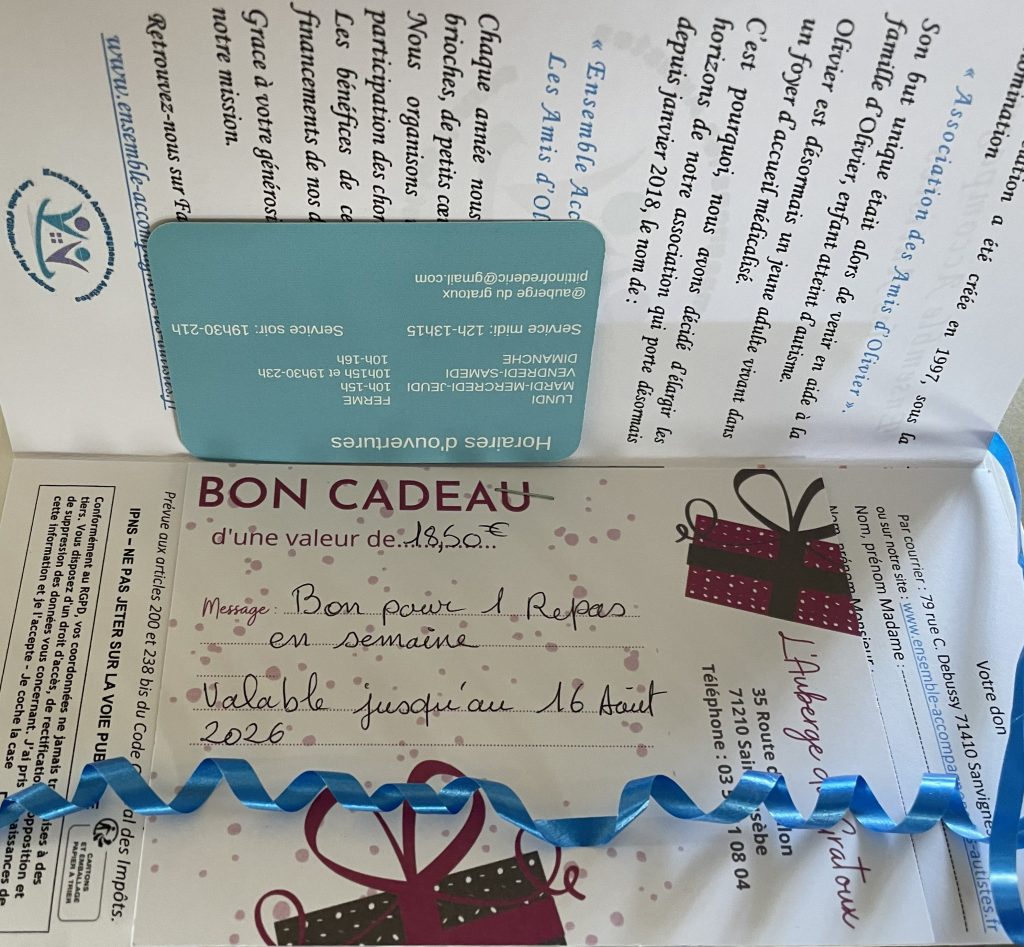 a été créée en 1997, sous la
« Association des Amis d'Olivier ».
Son but unique était alors de venir en aide à la
famille d'Olivier, enfant atteint d'autisme.
Olivier est désormais un jeune adulte vivant dans
un foyer d'accueil médicalisé.
C'est pourquoi, nous avons décidé d'élargir les
horizons de notre association qui porte désormais
depuis janvier 2018, le nom de :
« Ensemble Acc
Les Amis d'Ol
Chaque année nous
brioches, de petits cœu
Nous organisons
participation des chor
Les bénéfices de ce
financements de nos a
Grace à votre générosi
notre mission.
Retrouvez-nous sur Fa
www.ensemble-accompagnons-
Ensemble Accompagnons les Autistes
Horaires d'ouvertures
LUNDI FERME
MARDI-MERCREDI-JEUDI 10h-15h
VENDREDI-SAMEDI 10h15h et 19h30-23h
DIMANCHE 10h-16h
Service midi: 12h-13h15 Service soir: 19h30-21h
@auberge du gratoux
pittinofrederic@gmail.com
BON CADEAU
d'une valeur de 18,50€
Message : Bon pour 1 Repas
en semaine
Valable jusqu'au 16 Août
2026
L'Auberge du Gratoux
35 Route d lon
71210 Sai sèbe
Téléphone : 03 5 1 08 04
Votre don
Par courrier : 79 rue C. Debussy 71410 Sanvignes
ou sur notre site : www.ensemble-accompa s-autistes.fr
Nom, prénom Madame :
Nom, prénom Monsieur :
Prévue aux articles 200 et 238 bis du Code al des Impôts.
IPNS – NE PAS JETER SUR LA VOIE PUB E
CARTONS
ET EMBALLAGE
PAPIER À TRIER
Conformément au RGPD, vos coordonnées ne jamais tr ises à des
tiers. Vous disposez d'un droit d'accès, de rectificatio opposition et
de suppression des données vous concernant. J'ai pris aissances de
cette information et je l'accepte - Je coche la case